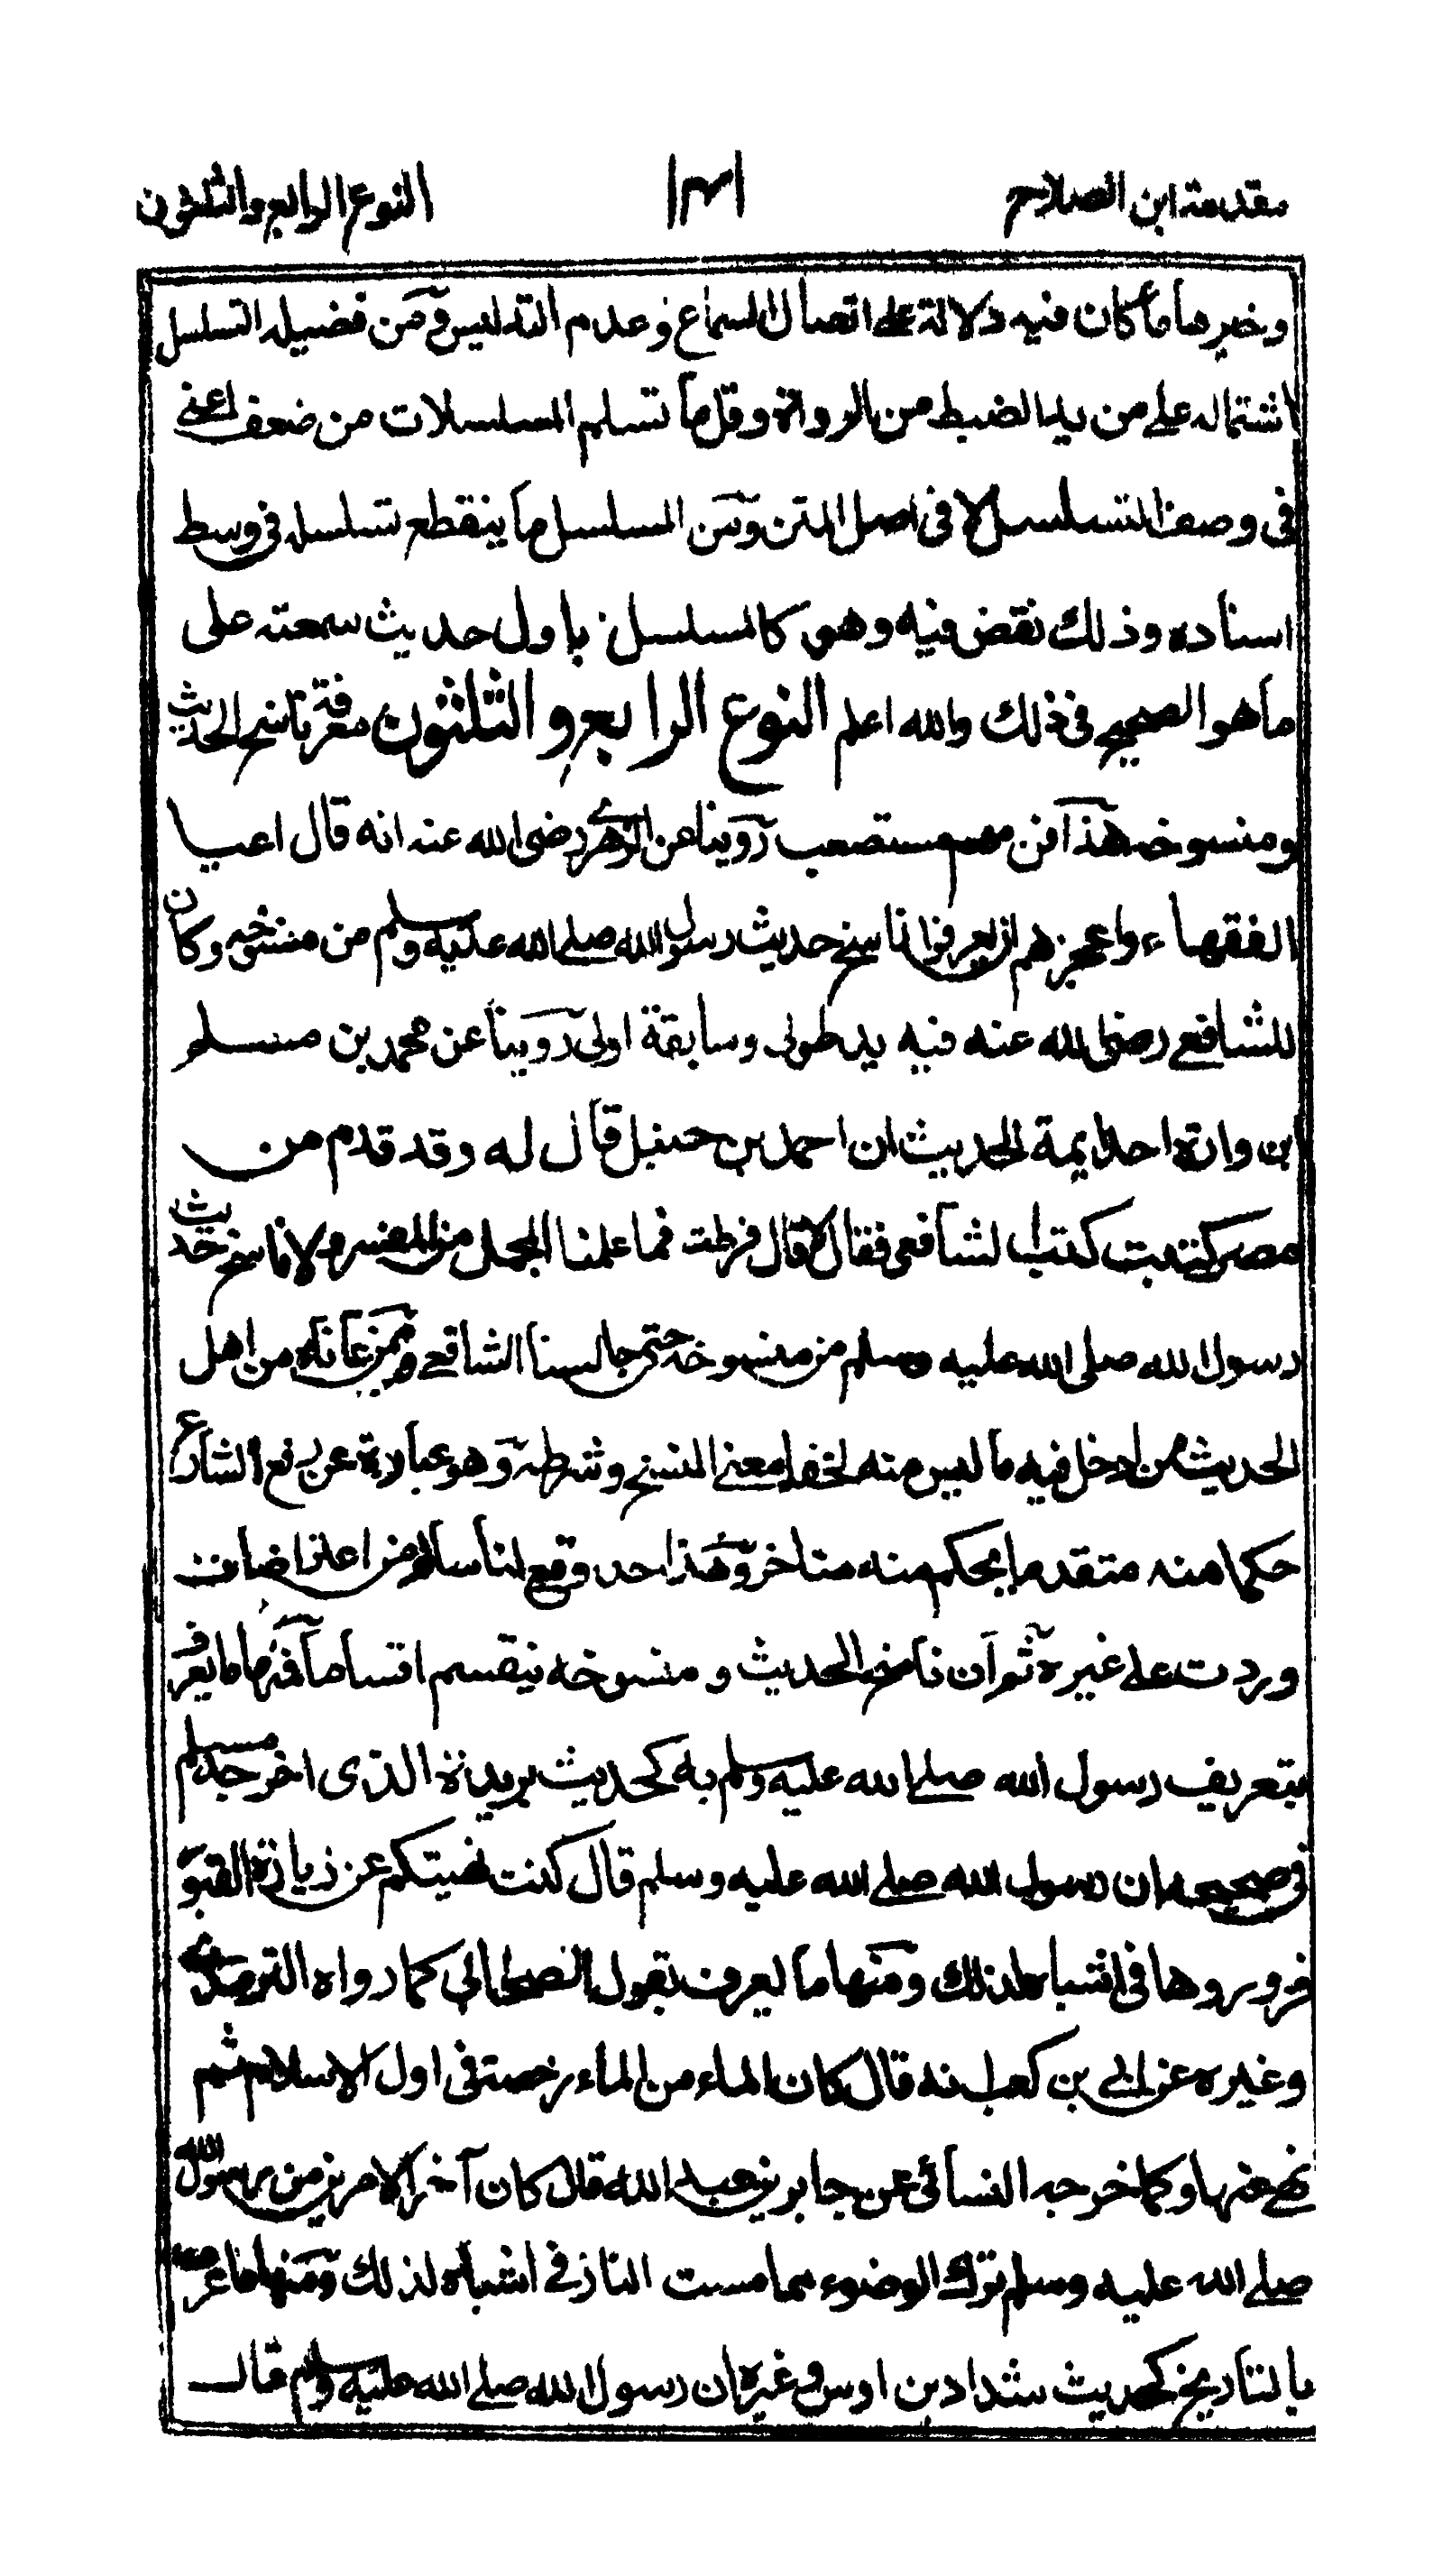 مقدمة ابن الصلاح ١٣١ النوع الرابع والثلثون
وخيرها ما كان فيه دلالة على اتصال السماع وعدم التدليس ومن فضيله التسلسل
اشتماله على من يد الضبط من الرواة وقل ما تسلم المسلسلات من ضعف اعنى
فى وصف التسلسل لا فى اصل المتن ومن المسلسل ما ينقطع تسلسله فى وسط
اسناده وذلك نقض فيه وهو كالمسلسل باول حديث سمعته على
ما هو الصحيح فى ذلك والله اعلم النوع الرابع والثلثون معرفة ناسخ الحديث
ومنسوخه هذا فن مهم مستصعب روينا عن الزهرى رضى الله عنه انه قال اعيا
الفقهاء واعجزهم ان يعرفوا ناسخ حديث رسول الله صلى الله عليه وسلم من منسوخه وكان
للشافعى رضى الله عنه فيه يد طولى وسابقة اولى روينا عن محمد بن مسلم
ابن وارة احد ايمة الحديث ان احمد بن حنبل قال له وقد قدم من
مصر كتبت كتب الشافعى فقال لا قال فرطت فما علمنا المجمل من المفسر ولا ناسخ حديث
رسول الله صلى الله عليه وسلم من منسوخه حتى جالسنا الشافعى وممن عاناه من اهل
الحديث من ادخل فيه ما ليس منه لخفا معنى النسخ وشرطه وهو عبارة عن رفع الشارع
حكما منه متقدما بحكم منه متاخر وهذا حد وقع لنا سالم من اعتراضات
وردت على غيره ثم ان ناسخ الحديث ومنسوخه ينقسم اقساما فمنها ما يعرف
بتعريف رسول الله صلى الله عليه وسلم به كحديث بريدة الذى اخرجه مسلم
فى صحيحه ان رسول الله صلى الله عليه وسلم قال كنت نهيتكم عن زيارة القبو
فزوروها فى اشباه لذلك ومنها ما يعرف بقول الصحابى كما رواه الترمذى
وغيره عن ابى بن كعب انه قال كان الماء من الماء رخصة فى اول الاسلام ثم
نهى عنها وكما خرجه النسائى عن جابر بن عبد الله قال كان آخر الامرين من رسول الله
صلى الله عليه وسلم ترك الوضوء مما مست النار فى اشباه لذلك ومنها ما عرف
بالتاريخ كحديث شداد بن اوس وغيره ان رسول الله صلى الله عليه وسلم قال